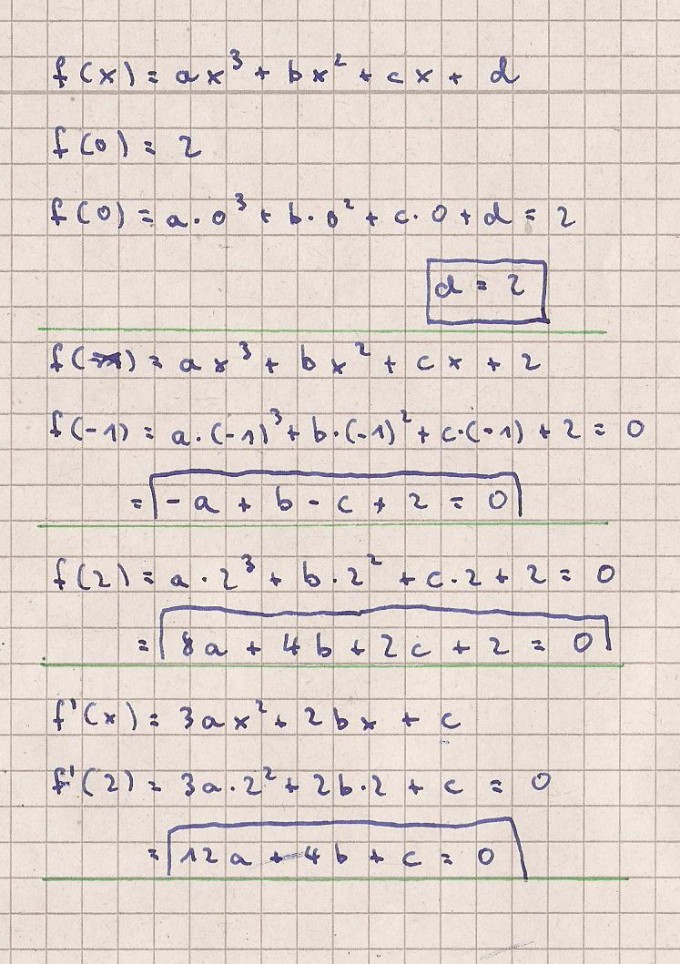 f(x) = ax³ + bx² + cx + d
f(0) = 2
f(0) = a·0³ + b·0² + c·0 + d = 2
d = 2
f(x) = ax³ + bx² + cx + 2
f(-1) = a·(-1)³ + b·(-1)² + c·(-1) + 2 = 0
= -a + b - c + 2 = 0
f(2) = a·2³ + b·2² + c·2 + 2 = 0
= 8a + 4b + 2c + 2 = 0
f'(x) = 3ax² + 2bx + c
f'(2) = 3a·2² + 2b·2 + c = 0
= 12a + 4b + c = 0